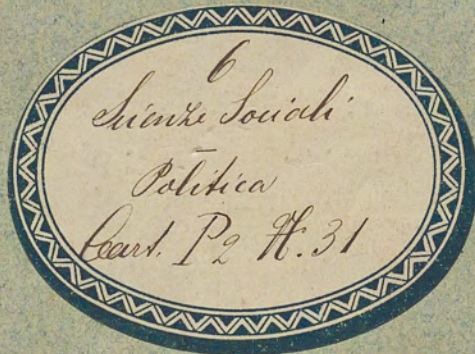 6
Scienze Sociali
—
Politica
Cart. P2 N. 31